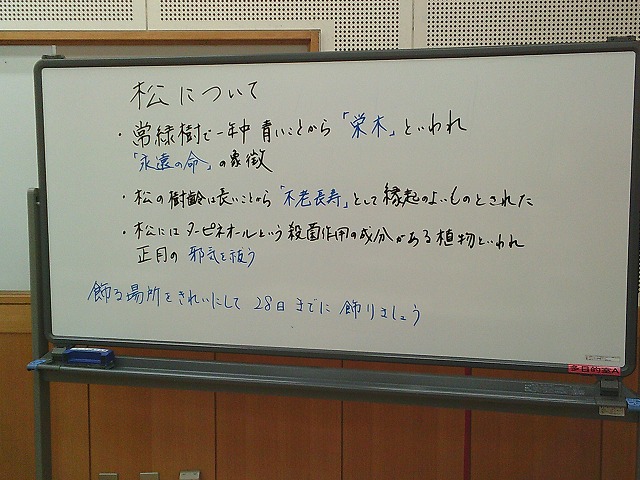 松について
・常緑樹で一年中青いことから「栄木」といわれ
「永遠の命」の象徴
・松の樹齢は長いことから「不老長寿」として縁起のよいものとされた
・松にはターピネオールという殺菌作用の成分がある植物といわれ
正月の 邪気を祓う
飾る場所をきれいにして 28日までに飾りましょう
多目的室A